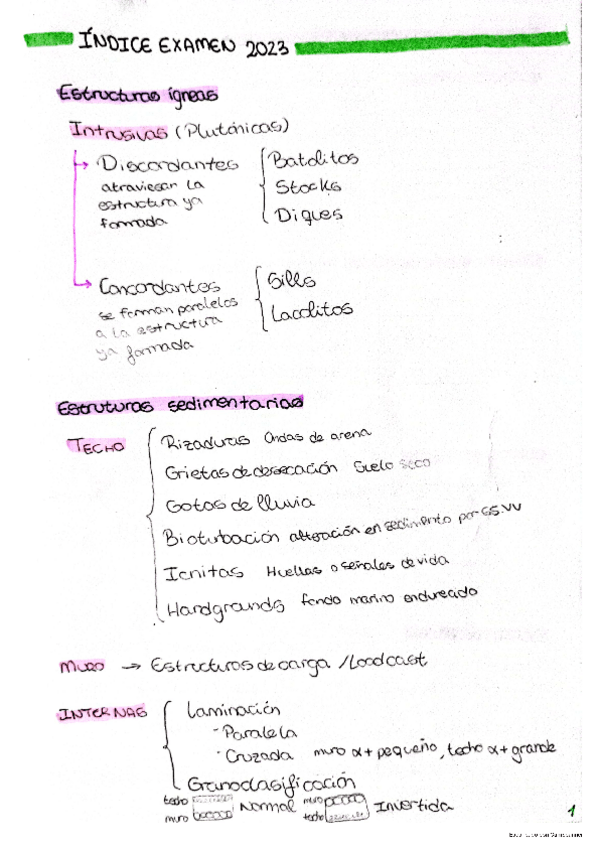 ÍNDICE EXAMEN 2023
Estructuras ígneas
Intrusivas (Plutónicas)
Discordantes
atraviesan la
estructura ya
formada
Batolitos
Stocks
Diques
Concordantes
se forman paralelos
a la estructura
ya formada
Sills
Lacolitos
Estruturas sedimentarias
TECHO
Rizaduras Ondas de arena
Grietas de desecación Suelo seco
Gotas de lluvia
Bioturbación alteración en sedimento por SS.VV
Icnitas Huellas o señales de vida
Hardgrounds fondo marino endurecido
MURO → Estructuras de carga / Loadcast
INTERNAS
Laminación
- Paralela
- Cruzada muro α + pequeño, techo α + grande
Granoclasificación
techo
muro
Normal
muro
techo
Invertida
1